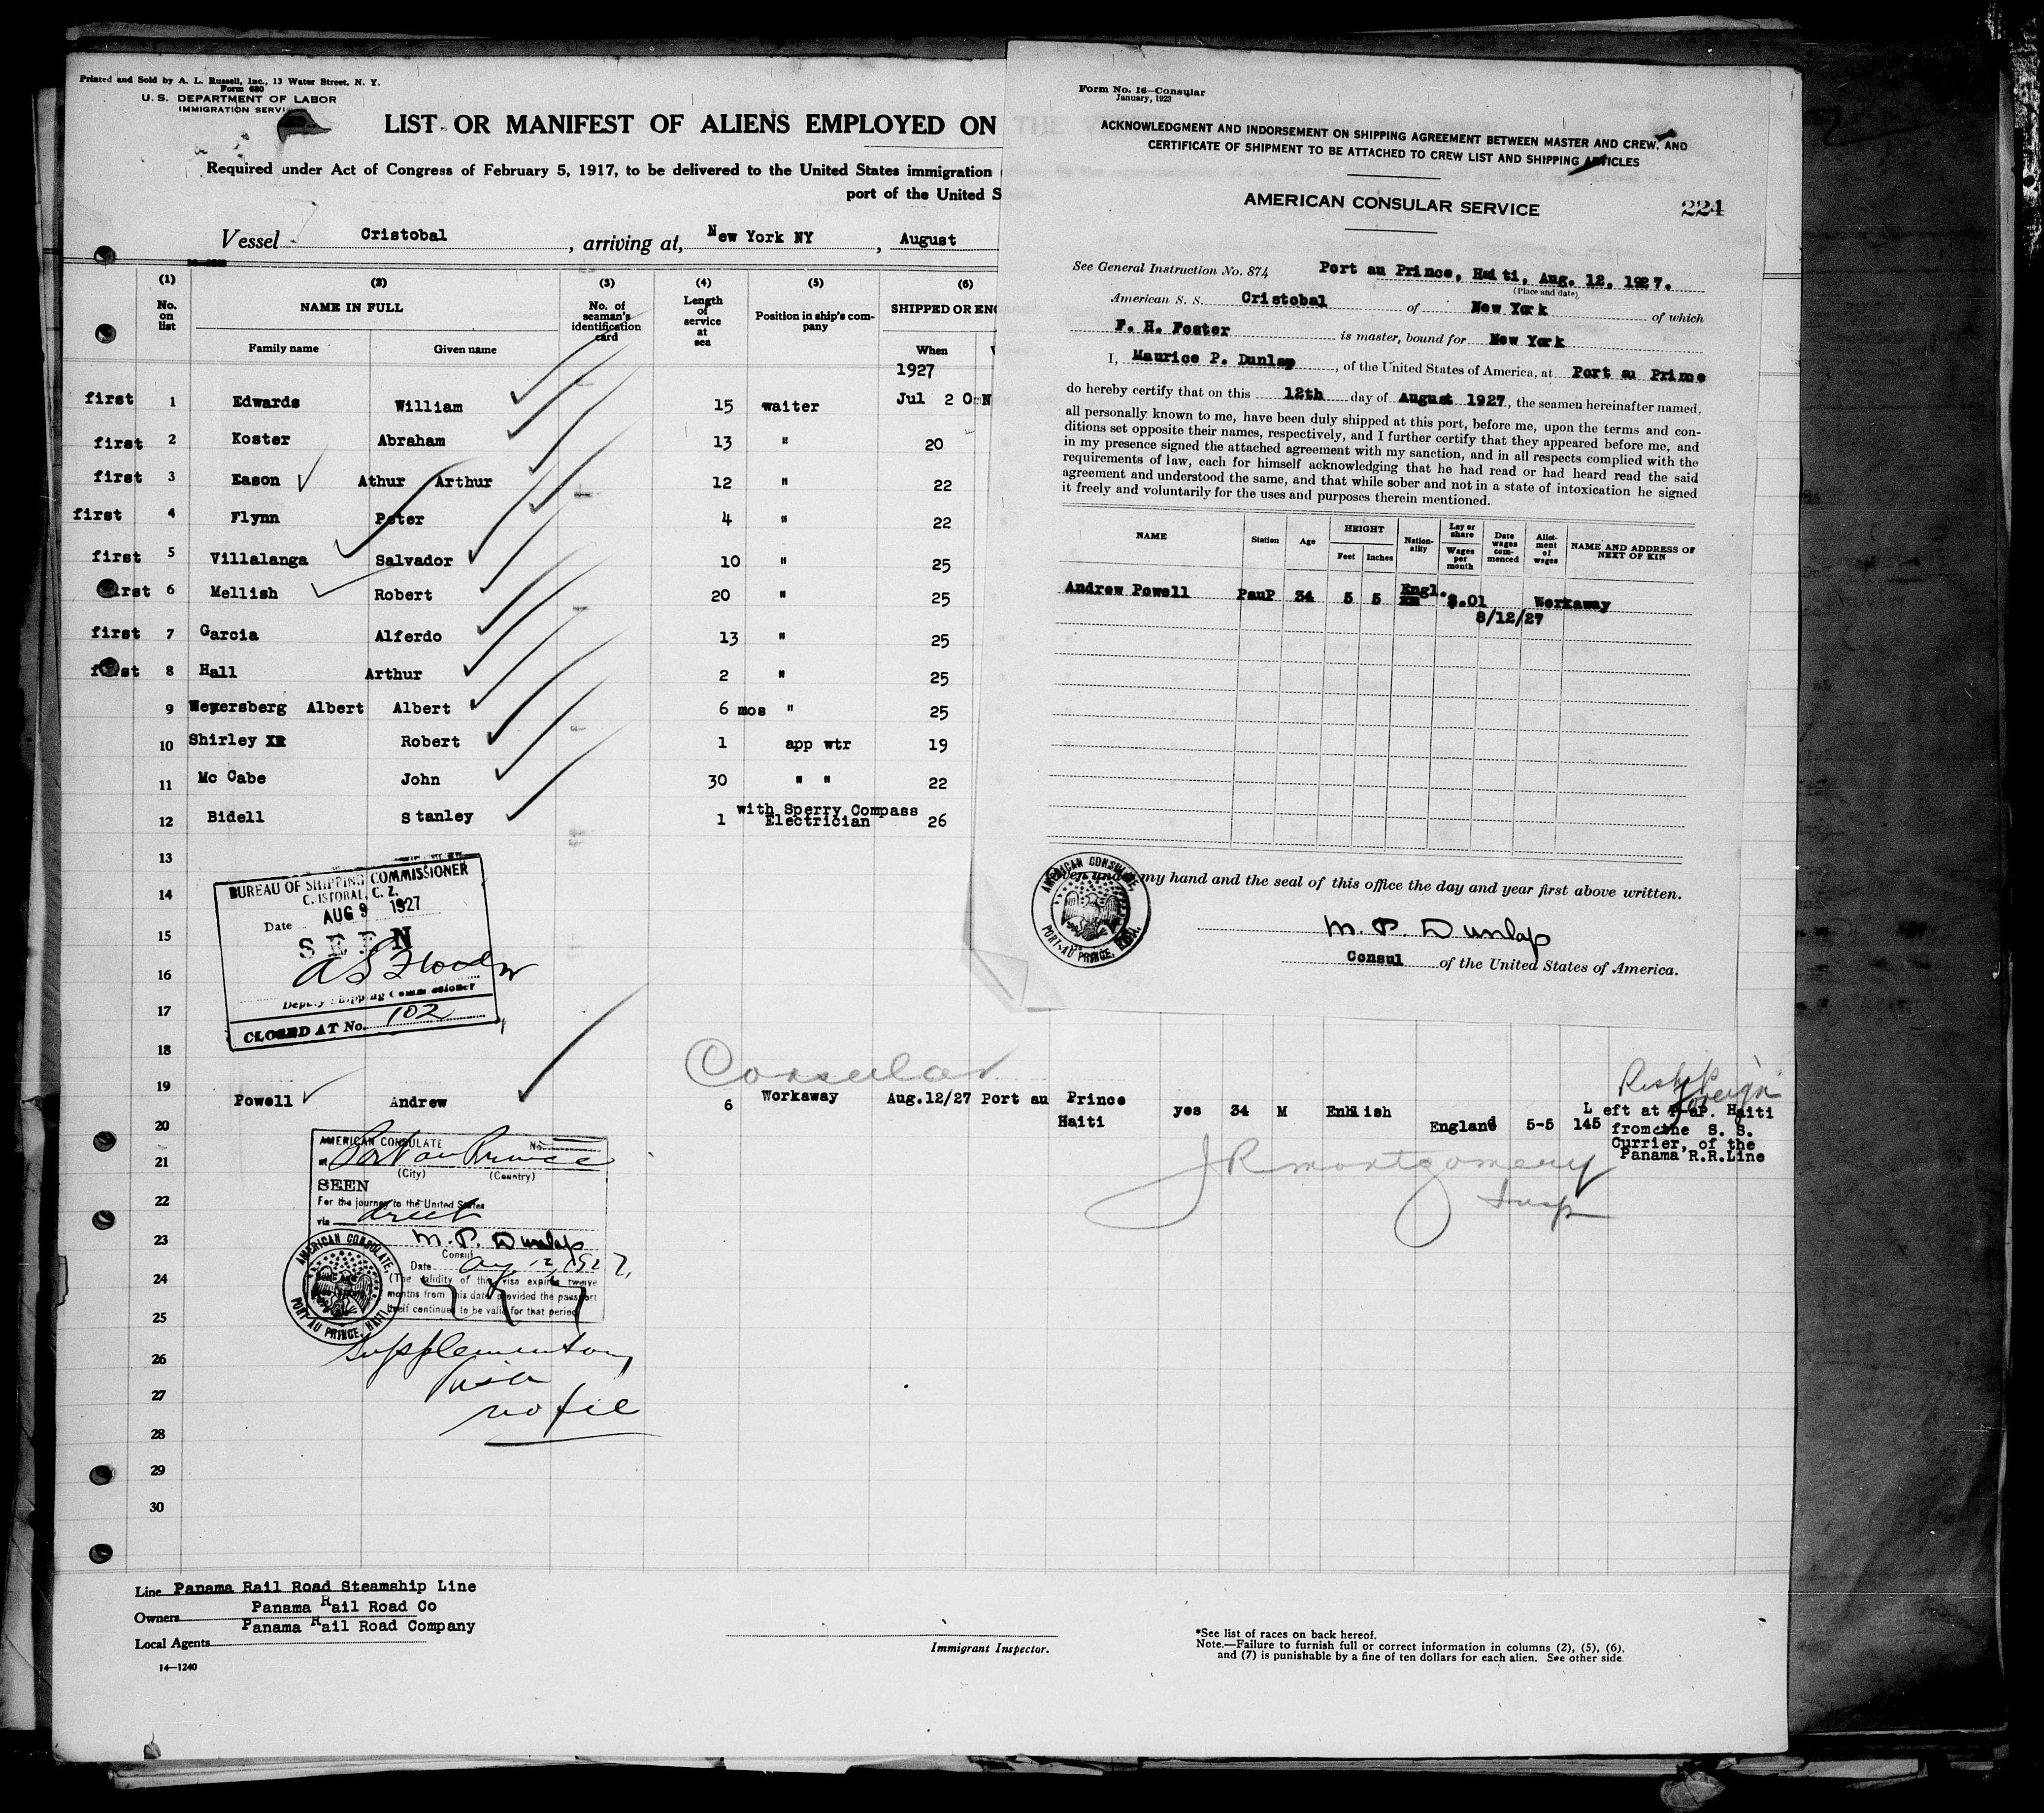 Printed and Sold by A. L. Russell, Inc., 13 Water Street, N. Y.
Form 680
U. S. DEPARTMENT OF LABOR
IMMIGRATION SERVI
LIST OR MANIFEST OF ALIENS EMPLOYED ON
Required under Act of Congress of February 5, 1917, to be delivered to the United States immigration
port of the United S
Vessel Cristobal , arriving at, New York NY , August
(1) (2) (3) (4) (5) (6)
No. on list NAME IN FULL No. of seaman's identification card Length of service at sea Position in ship's company SHIPPED OR ENG
Family name Given name When
1927
first 1 Edwards William 15 waiter Jul 20 N
first 2 Koster Abraham 13 " 20
first 3 Eason Athur Arthur 12 " 22
first 4 Flynn Peter 4 " 22
first 5 Villalanga Salvador 10 " 25
first 6 Mellish Robert 20 " 25
first 7 Garcia Alferdo 13 " 25
first 8 Hall Arthur 2 " 25
9 Weyersberg Albert Albert 6 mos " 25
10 Shirley XR Robert 1 app wtr 19
11 Mc Cabe John 30 " " 22
12 Bidell Stanley 1 with Sperry Compass Electrician 26
13
14
15
16
17
18
BUREAU OF SHIPPING COMMISSIONER
CRISTOBAL, C. Z.
Date AUG 9 1927
SEEN
Deputy Shipping Commissioner
CLOSED AT No. 102
Consular
19 Powell Andrew 6 Workaway Aug.12/27 Port au Prince Haiti yes 34 M English England 5-5 145 Left at P-aP. Haiti
from the S. S.
Currier, of the
Panama R.R.Line
Reship foreign
J R Montgomery
Insp
20
21
22
23
24
25
26
27
28
29
30
AMERICAN CONSULATE No.
at Port au Prince
(City) (Country)
SEEN
For the journey to the United States
via direct
M. P. Dunlap
Consul
Date Aug. 12, 1927.
(The validity of this visa expires twelve
months from this date provided the passport
itself continues to be valid for that period
AMERICAN CONSULATE, PORT AU PRINCE, HAITI
Supplementary
Visa
no fee
Line Panama Rail Road Steamship Line
Owners Panama Rail Road Co
Local Agents Panama Rail Road Company
14—1240
Immigrant Inspector.
*See list of races on back hereof.
Note.—Failure to furnish full or correct information in columns (2), (5), (6),
and (7) is punishable by a fine of ten dollars for each alien. See other side
Form No. 16—Consular
January, 1923
ACKNOWLEDGMENT AND INDORSEMENT ON SHIPPING AGREEMENT BETWEEN MASTER AND CREW. AND
CERTIFICATE OF SHIPMENT TO BE ATTACHED TO CREW LIST AND SHIPPING ARTICLES
AMERICAN CONSULAR SERVICE
224
See General Instruction No. 874 Port au Prince, Haiti, Aug. 12, 1927.
(Place and date)
American S. S. Cristobal of New York of which
F. H. Foster is master, bound for New York
I, Maurice P. Dunlap , of the United States of America, at Port au Prince
do hereby certify that on this 12th day of August 1927, the seamen hereinafter named,
all personally known to me, have been duly shipped at this port, before me, upon the terms and con-
ditions set opposite their names, respectively, and I further certify that they appeared before me, and
in my presence signed the attached agreement with my sanction, and in all respects complied with the
requirements of law, each for himself acknowledging that he had read or had heard read the said
agreement and understood the same, and that while sober and not in a state of intoxication he signed
it freely and voluntarily for the uses and purposes therein mentioned.
NAME Station Age HEIGHT Feet Inches Nation-ality Lay or share Wages per month Date wages com-menced Allot-ment of wages NAME AND ADDRESS OF NEXT OF KIN
Andrew Powell PauP 34 5 5 Engl. $.01 Workaway
8/12/27
Given under my hand and the seal of this office the day and year first above written.
AMERICAN CONSULATE, PORT-AU PRINCE, HAITI.
M. P. Dunlap
Consul of the United States of America.